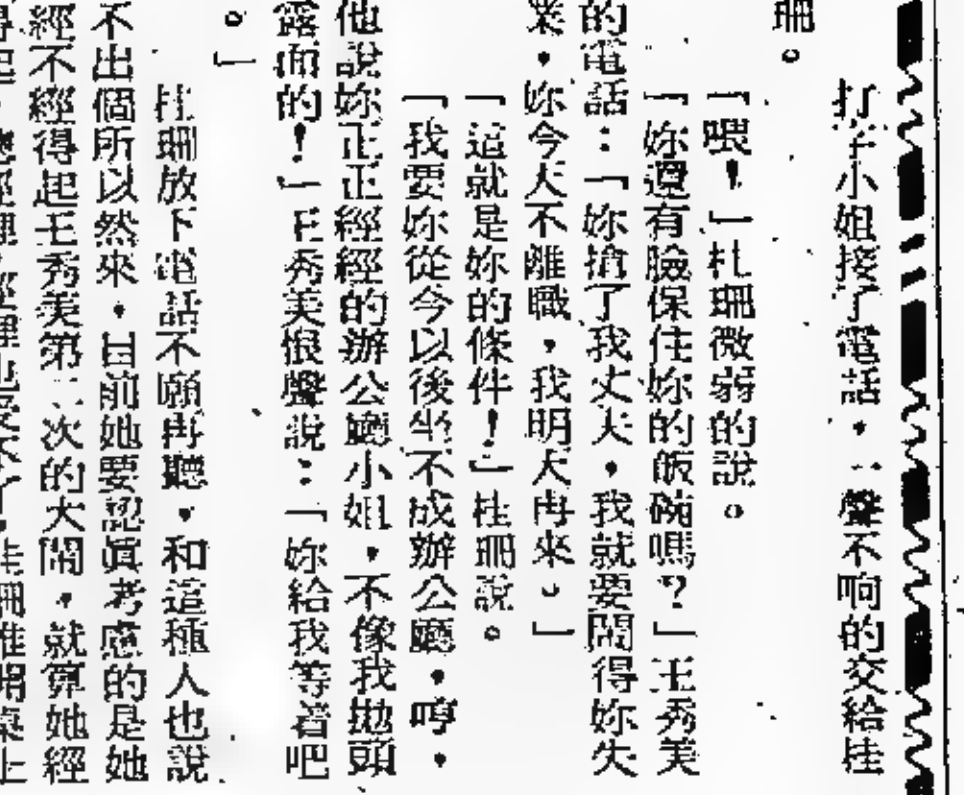 打字小姐接了電話，一聲不响的交給桂
珊。
「喂！」桂珊微弱的說。
「妳還有臉保住妳的飯碗嗎？」王秀美
的電話：「妳搶了我丈夫，我就要鬧得妳失
業，妳今天不離職，我明天再來。」
「這就是妳的條件！」桂珊說。
「我要妳從今以後坐不成辦公廳，哼，
他說妳正正經經的辦公廳小姐，不像我拋頭
露面的！」王秀美恨聲說：「妳給我等着吧
。」
桂珊放下電話不願再聽，和這種人也說
不出個所以然來，目前她要認眞考慮的是她
經不經得起王秀美第二次的大鬧，就算她經